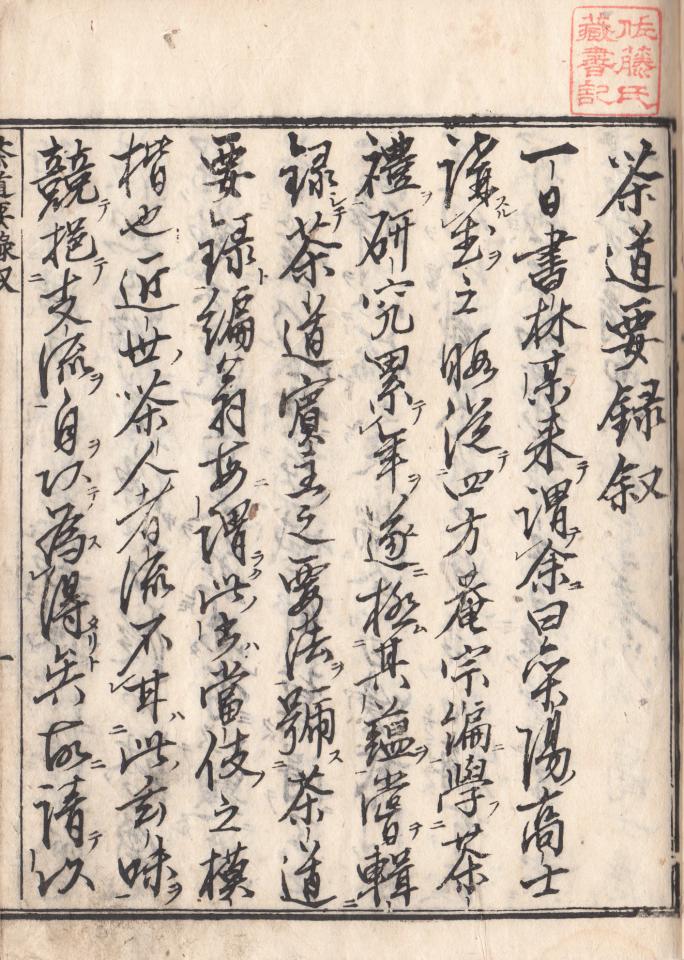 佐藤氏
藏書記
茶道要録叙
一日書林某来謂余曰栄陽高士
之晦從四方菴宗徧學茶
禮研究累年遂極其蘊嘗輯
録茶道賓主之要法號茶道
要録徧翁毎謂此書當伎之模
楷也近世茶人者流不甘此玄味
競挹支流自以為得矣故請以
茶道要録叙
一